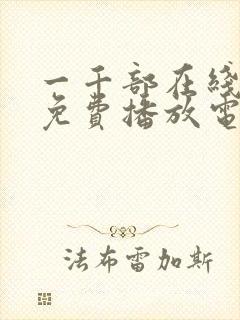 一千部在线
免費播放電
法布雷加斯